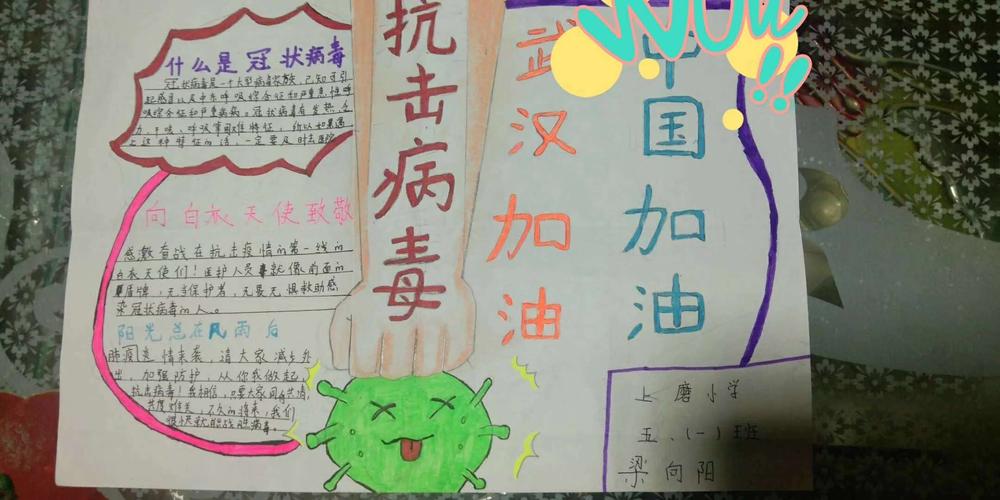 什么是冠状病毒
冠状病毒是一个大型病毒家族，已知可引
起感冒以及中东呼吸综合征和严重急性呼
吸综合征和严重疾病。冠状病毒有发热、乏
力、干咳、呼吸窘困难特征，所以如果遇
上这种特征的话，一定要及时去医院
向白衣天使致敬
感激奋战在抗击疫情的第一线的
白衣天使们！医护人员就像前面的
盾牌，充当保护者，无畏无惧救助感
染冠状病毒的人。
阳光总在风雨后
肺炎疫情来袭，请大家减少外
出，加强防护，从你我做起，
抗击病毒！我相信，只要大家同舟共济，
共度难关，不久的将来，我们
很快就能战胜病毒。
抗击病毒
武汉加油
中国加油
Wow!!
上磨小学
五、(一)班
梁向阳